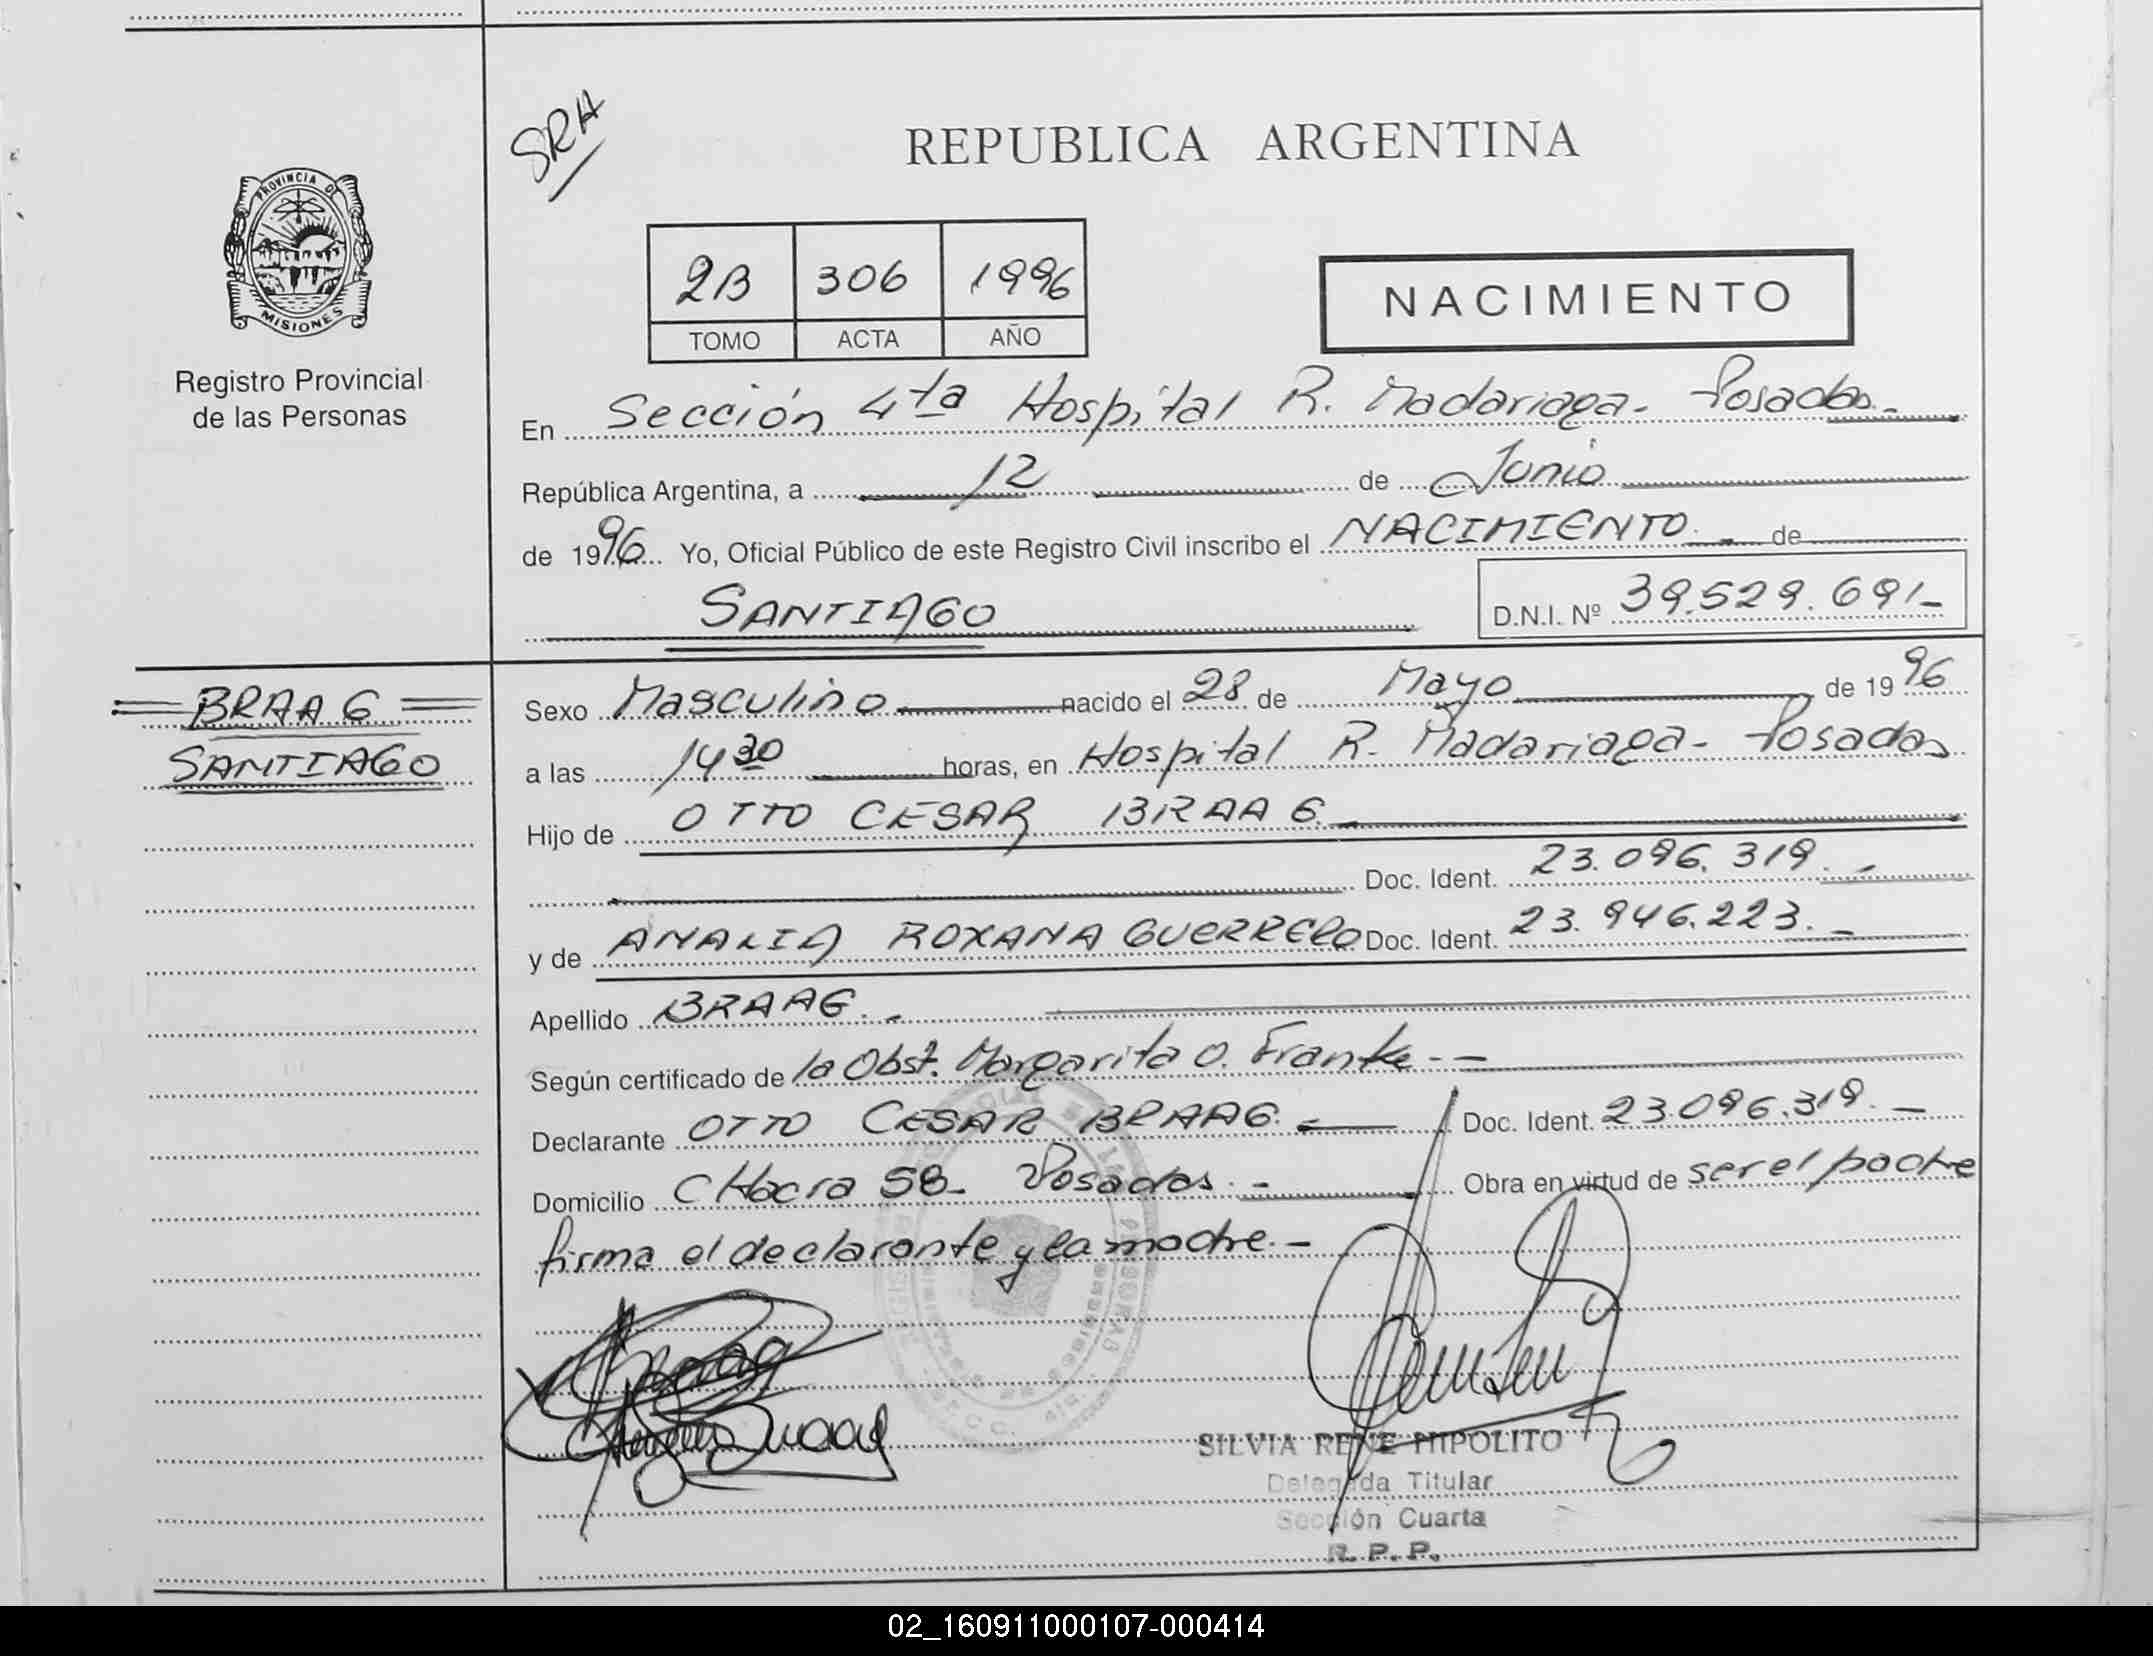 SRH
REPUBLICA ARGENTINA
PROVINCIA DE
MISIONES
Registro Provincial
de las Personas
2B 306 1996
TOMO ACTA AÑO
NACIMIENTO
En Sección 4ta Hospital R. Madariaga - Posadas.-
República Argentina, a 12 de Junio
de 1996 Yo, Oficial Público de este Registro Civil inscribo el NACIMIENTO.- de
SANTIAGO D.N.I. Nº 39.529.691-
= BRAAG =
SANTIAGO
Sexo Masculino nacido el 28 de Mayo de 1996
a las 14 30 horas, en Hospital R. Madariaga - Posadas
Hijo de OTTO CESAR BRAAG.-
Doc. Ident. 23.096.319.-
y de ANALIA ROXANA GUERRERO Doc. Ident. 23.946.223.-
Apellido BRAAG.-
Según certificado de la Obst. Margarita O. Franke.-
Declarante OTTO CESAR BRAAG.- Doc. Ident. 23.096.319.-
Domicilio CHacra 58- Posadas.- Obra en virtud de ser el padre
firma el declarante y la madre.-
SILVIA RENE HIPOLITO
Delegada Titular
Sección Cuarta
R. P. P.
02_160911000107-000414